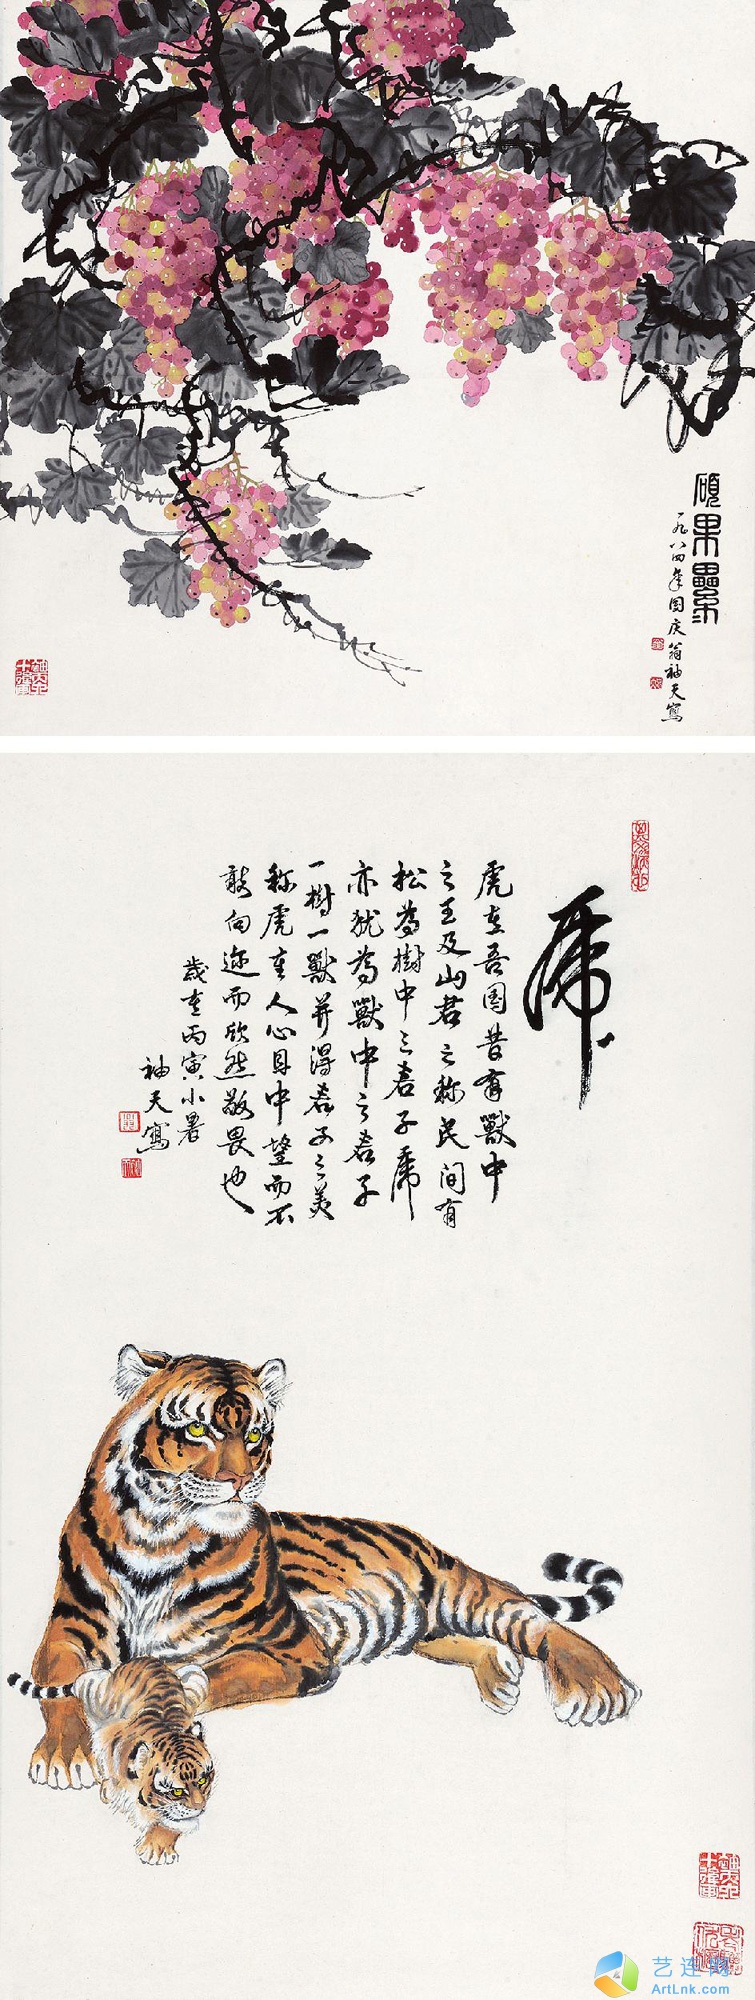 碩果纍
一九八四年国庆翁袖天寫
虎
虎在吾国昔有獸中
之王及山君之称民间有
松為樹中之君子虎
亦犹為獸中之君子
一樹一獸并得君子之美
称虎在人心目中望而不
敢向迩而欣然敬畏也
歲在丙寅小暑
袖天寫
艺连网
ArtLnk.com